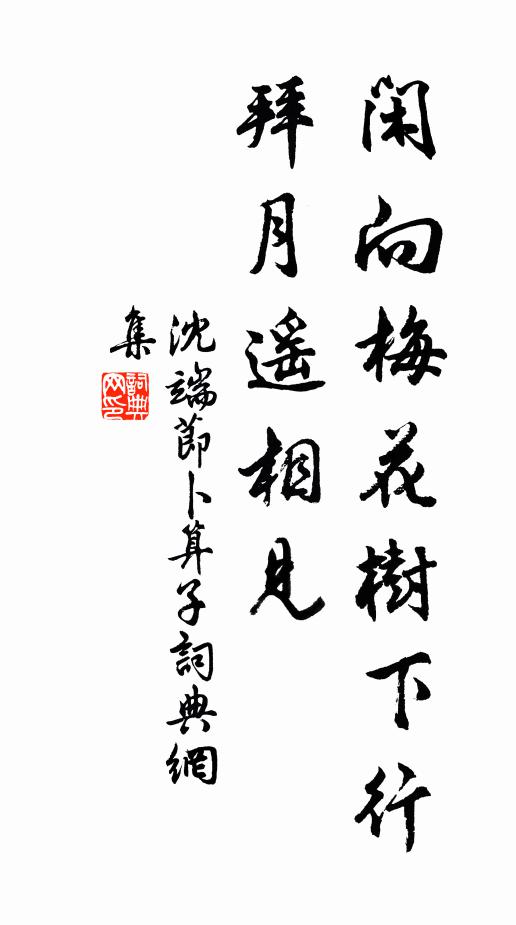 閑向梅花樹下行
拜月遥相見
沈端節卜算子詞典網
集
詞典
网印